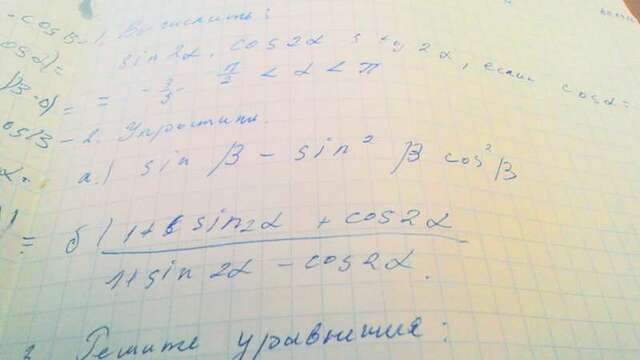 1. Вычислить:
sin2α, cos2α, tg2α, если cosα=
= -3/5 π/2 < α < π
2. Упростить.
а.) sin β - sin² β cos² β
б) 1+ sin2α + cos2α
1+sin 2α - cos2α.
Решите уравнения: